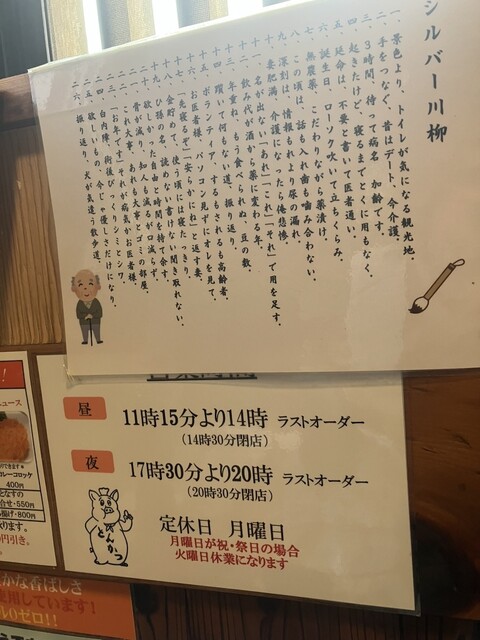 シルバー川柳
一、景色より、トイレが気になる観光地。
二、手をつなぐ、昔はデート、今介護。
三、3時間、待って病名 加齢です。
四、起きたけど、寝るまでとくに用もなく、
五、延命は 不要と書いて医者通い。
六、誕生日、ローソク吹いて立ちくらみ。
七、無農薬、こだわりながら薬漬け。
八、この頃は、話も入れ歯も噛み合わない。
九、深刻は、情報もれより尿の漏れ。
十、妻肥満、介護になったら倦怠感。
十一、名が出ない「あれ」「これ」「それ」で用を足す。
十二、飲み代が酒から薬に変わる年。
十三、年重ね、もう食べられぬ、豆の数。
十四、躓いて何もない道、振り返り。
十五、ボランティア、するもされるも高齢者。
十六、お医者様、パソコン見ずにオレを見て。
十七、「先寝るぞ」「安らかにね」と返す妻。
十八、金貯めて、使う頃には寝たっきり。
十九、ひ孫の名、読めない書けない聞き取れない。
二十、欲しかった自由と時間を持て余す。
二一、骨が減り、知人も減るが口減らず。
二二、これ大事、あれも大事とゴミの部屋。
二三、「お年です」それが病気かお医者様。
二四、白内障、術後びっくりシミとシワ。
二五、欲しいもの、今じゃ優しさだけになり。
二六、振り返り、犬が気遣う散歩道。
昼 11時15分より14時 ラストオーダー
（14時30分閉店）
夜 17時30分より20時 ラストオーダー
（20時30分閉店）
とんかつ
定休日 月曜日
月曜日が祝・祭日の場合
火曜日休業になります
ニュース
コロッケ
400円
550円
800円
円引き。
かな香ばしさ
使用しています！
ゼロ!!